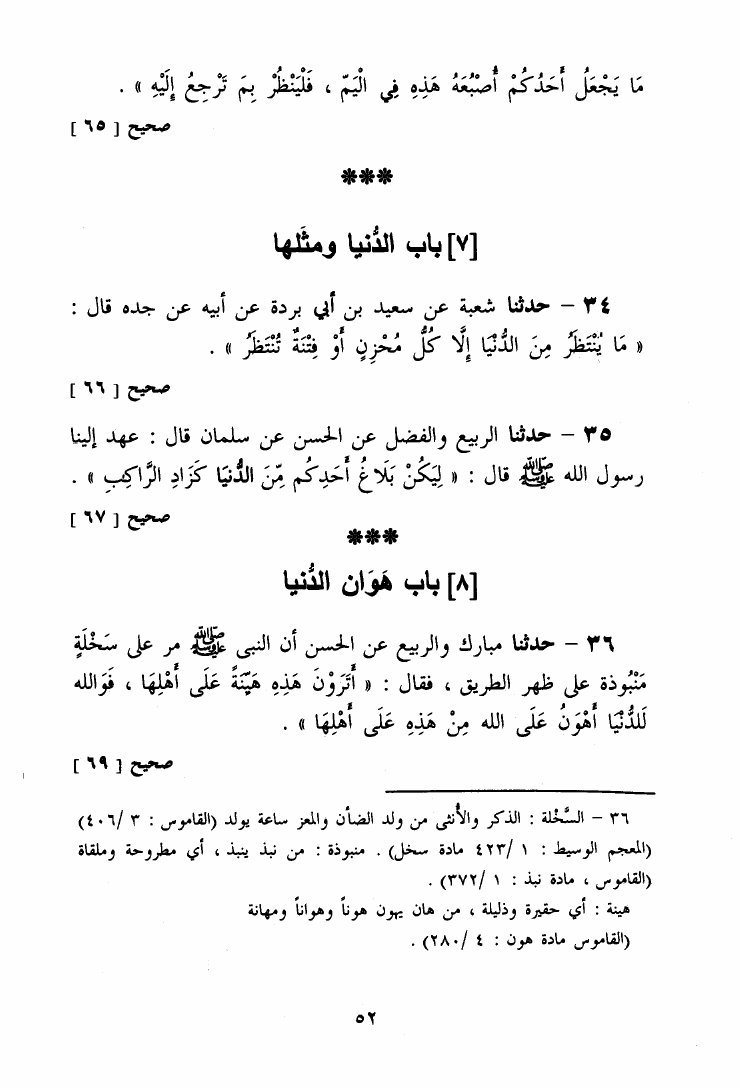 مَا يَجْعَلُ أَحَدُكُمْ أُصْبُعَهُ هَذِهِ فِي الْيَمِّ ، فَلْيَنْظُرْ بِمَ تَرْجِعُ إِلَيْهِ » .
صحيح [ ٦٥ ]
***
[٧] باب الدُّنيا ومثَلها
٣٤ – حدثنا شعبة عن سعيد بن أبي بردة عن أبيه عن جده قال :
« مَا يُنْتَظَرُ مِنَ الدُّنْيَا إِلَّا كُلُّ مُحْزِنٍ أَوْ فِتْنَةٌ تُنْتَظَرُ » .
صحيح [ ٦٦ ]
٣٥ – حدثنا الربيع والفضل عن الحسن عن سلمان قال : عهد إلينا
رسول الله ﷺ قال : « لِيَكُنْ بَلَاغُ أَحَدِكُم مِّنَ الدُّنيَا كَزَادِ الرَّاكِبِ » .
صحيح [ ٦٧ ]
***
[٨] باب هَوَان الدُّنيا
٣٦ – حدثنا مبارك والربيع عن الحسن أن النبى ﷺ مر على سَخْلَةٍ
مَنْبُوذة على ظهر الطريق ، فقال : « أَتَرَوْنَ هَذِهِ هَيِّنَةً عَلَى أَهْلِهَا ، فَوَالله
لَلدُّنْيَا أَهْوَنُ عَلَى الله مِنْ هَذِهِ عَلَى أَهْلِهَا » .
صحيح [ ٦٩ ]
٣٦ – السَّخْلة : الذكر والأُنثى من ولد الضأن والمعز ساعة يولد (القاموس : ٣ /٤٠٦)
(المعجم الوسيط : ١ /٤٢٣ مادة سخل) . منبوذة : من نبذ ينبذ ، أي مطروحة وملقاة
(القاموس ، مادة نبذ : ١ /٣٧٢) .
هينة : أي حقيرة وذليلة ، من هان يهون هوناً وهواناً ومهانة
(القاموس مادة هون : ٤ /٢٨٠) .
٥٢